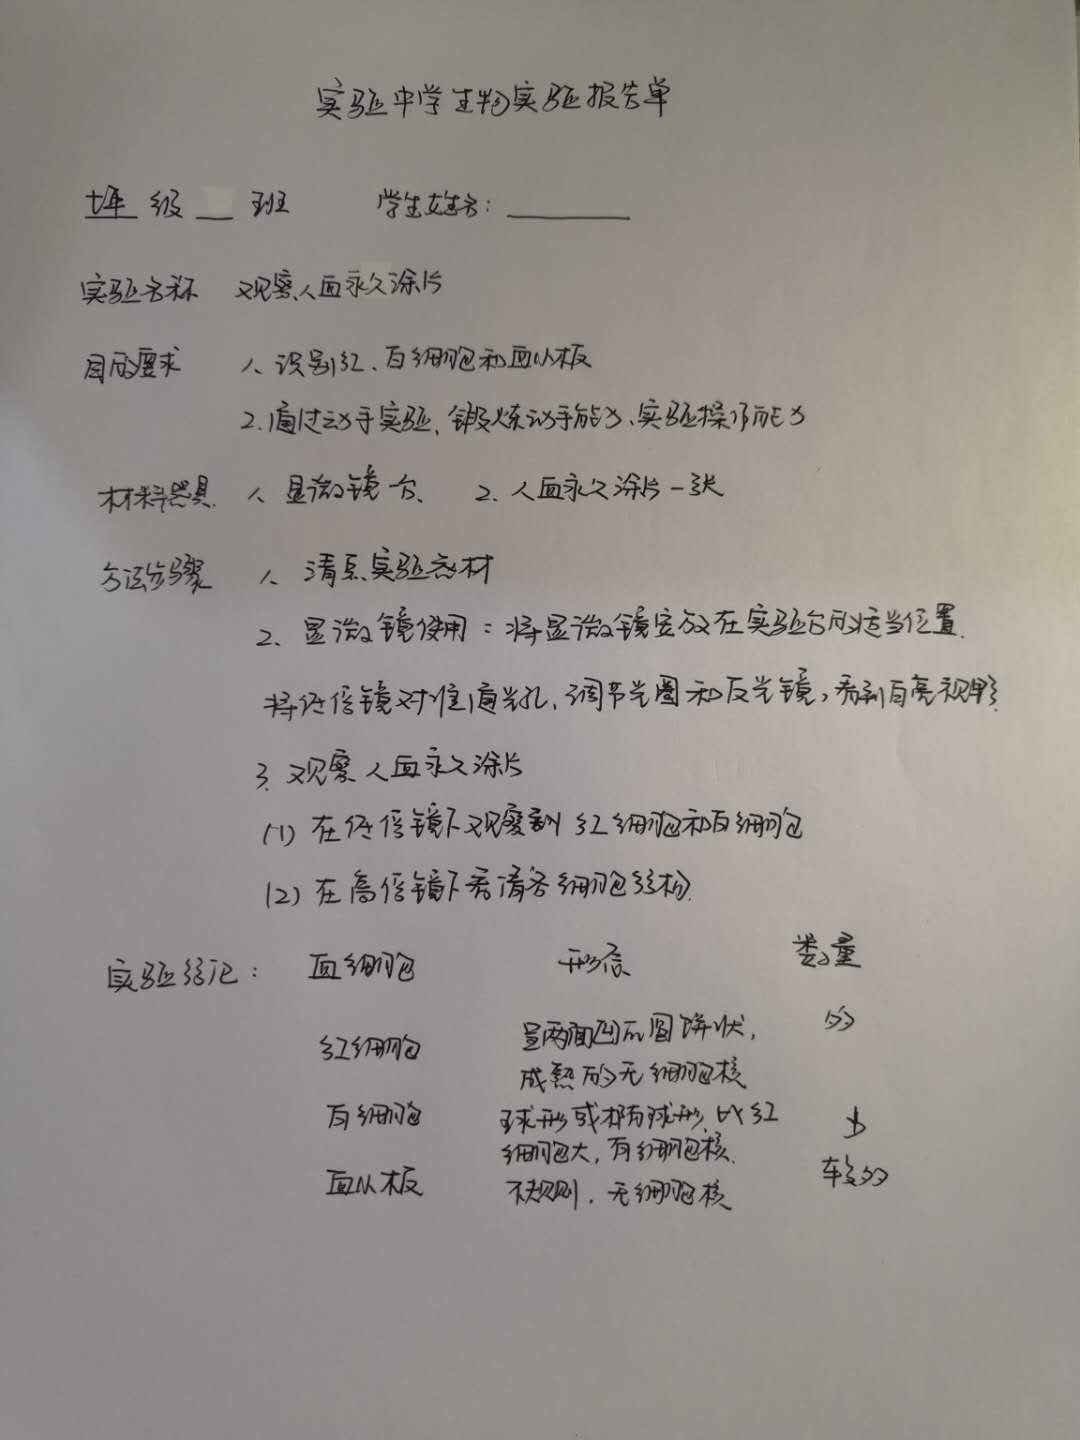 实验中学生物实验报告单
七年 级 班 学生姓名：
实验名称 观察人血永久涂片
目的要求 1、识别红、白细胞和血小板
2.通过动手实验，锻炼动手能力、实验操作能力
材料器具 1、显微镜一台、 2、人血永久涂片一张
方法步骤 1、清点实验器材
2、显微镜使用：将显微镜安放在实验台的适当位置.
将低倍镜对准通光孔，调节光圈和反光镜，看到白亮视野.
3. 观察人血永久涂片
(1) 在低倍镜下观察到红细胞和白细胞
(2) 在高倍镜下看清各细胞结构.
实验结论： 血细胞 形态 数量
红细胞 呈两面凹的圆饼状， 多
成熟的无细胞核
白细胞 球形或椭球形，比红 少
细胞大，有细胞核.
血小板 不规则，无细胞核 较多